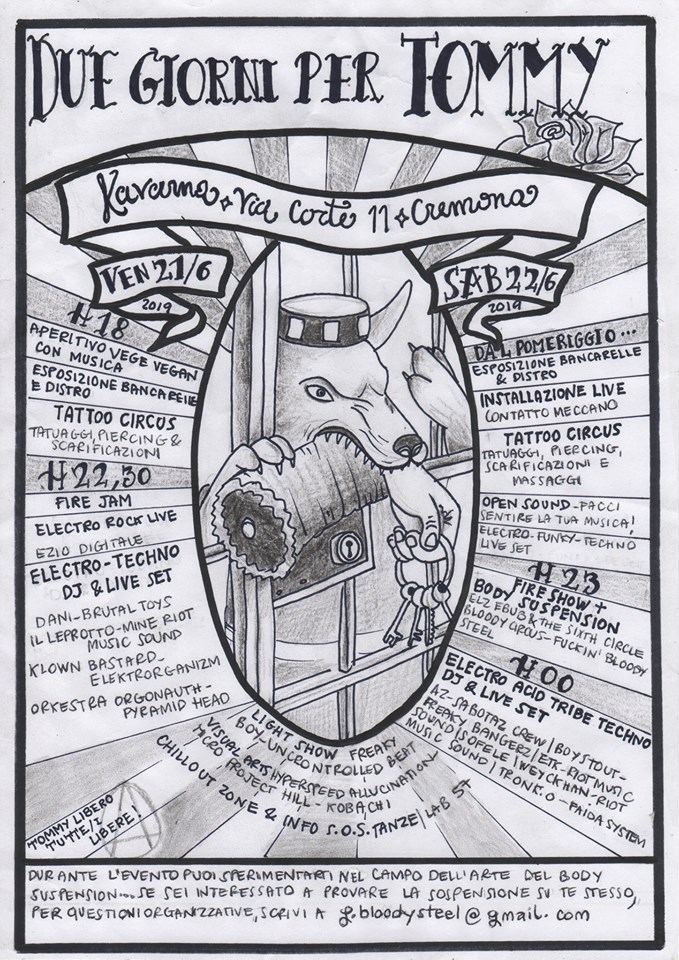 DUE GIORNI PER TOMMY
Kavarna ✦ Via Corte 11 ✦ Cremona
VEN 21/6
2019
H 18
APERITIVO VEGE VEGAN
CON MUSICA
ESPOSIZIONE BANCARELLE
E DISTRO
TATTOO CIRCUS
TATUAGGI, PIERCING &
SCARIFICAZIONI
H 22,30
FIRE JAM
ELECTRO ROCK LIVE
EZIO DIGITALE
ELECTRO-TECHNO
DJ & LIVE SET
DANI-BRUTAL TOYS
IL LEPROTTO-MINE RIOT
MUSIC SOUND
KLOWN BASTARD-
ELEKTRORGANIZM
ORKESTRA ORGONAUTH-
PYRAMID HEAD
SAB 22/6
2019
DAL POMERIGGIO ...
ESPOSIZIONE BANCARELLE
& DISTRO
INSTALLAZIONE LIVE
CONTATTO MECCANO
TATTOO CIRCUS
TATUAGGI, PIERCING,
SCARIFICAZIONI E
MASSAGGI
OPEN SOUND-FACCI
SENTIRE LA TUA MUSICA!
ELECTRO-FUNKY-TECHNO
LIVE SET
H 23
FIRE SHOW +
BODY SUSPENSION
ELZ EBUB & THE SIXTH CIRCLE
BLOODY CIRCUS-FUCKIN' BLOODY
STEEL
H 00
ELECTRO ACID TRIBE TECHNO
DJ & LIVE SET
AZ-SABOTAZ CREW | BOYSTOUT-
FREAKY BANGERZ | ETK-RIOT MUSIC
SOUND | SOFELE | WEYCKHAN-RIOT
MUSIC SOUND | TRONK.O-FAIDA SYSTEM
LIGHT SHOW FREAKY
BOY-UNCRONTROLLED BEAT
VISUAL ARTS HYPERSPEED ALLUCINATION
MICRO PROJECT HILL-KOBACHI
CHILLOUT ZONE & INFO S.O.S. TANZE | LAB 57
TOMMY LIBERO
TUTTE/I
LIBERE!
DURANTE L'EVENTO PUOI SPERIMENTARTI NEL CAMPO DELL'ARTE DEL BODY
SUSPENSION... SE SEI INTERESSATO A PROVARE LA SOSPENSIONE SU TE STESSO,
PER QUESTIONI ORGANIZZATIVE, SCRIVI A f.bloodysteel@gmail.com